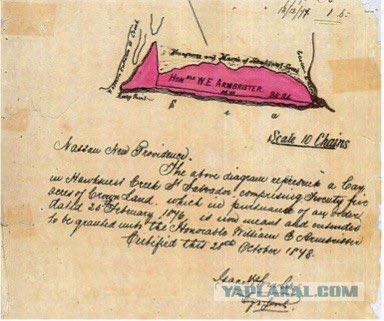 Mangroves and Marsh of Hawksnest Creek
HONBLE W. E. ARMBRISTER
Rocky Point
Scale 10 Chains
Nassau New Providence.
The above diagram represents a Cay
in Hawksnest Creek St Salvador comprising Twenty five
acres of Crown Land which in pursuance of an order
dated 26th February 1876, is now meant and intended
to be granted unto the Honorable William E Armbrister
Certified this 28th October 1878.
YAPLAKAL.COM